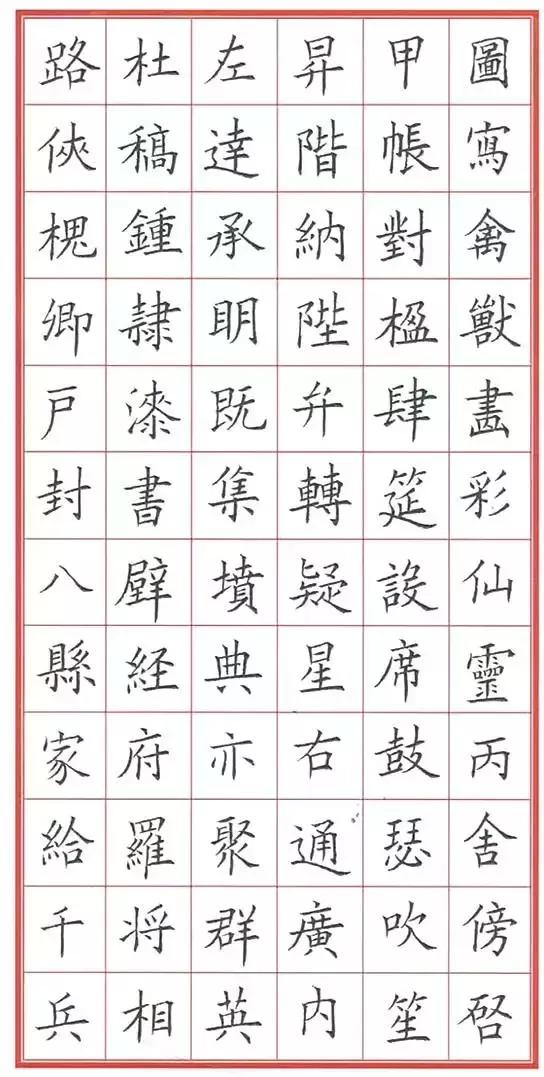 圖寫禽獸畫彩仙靈丙舍傍啓
甲帳對楹肆筵設席鼓瑟吹笙
昇階納陛弁轉疑星右通廣内
左達承明既集墳典亦聚群英
杜稿鍾隸漆書壁経府羅将相
路俠槐卿戸封八縣家給千兵